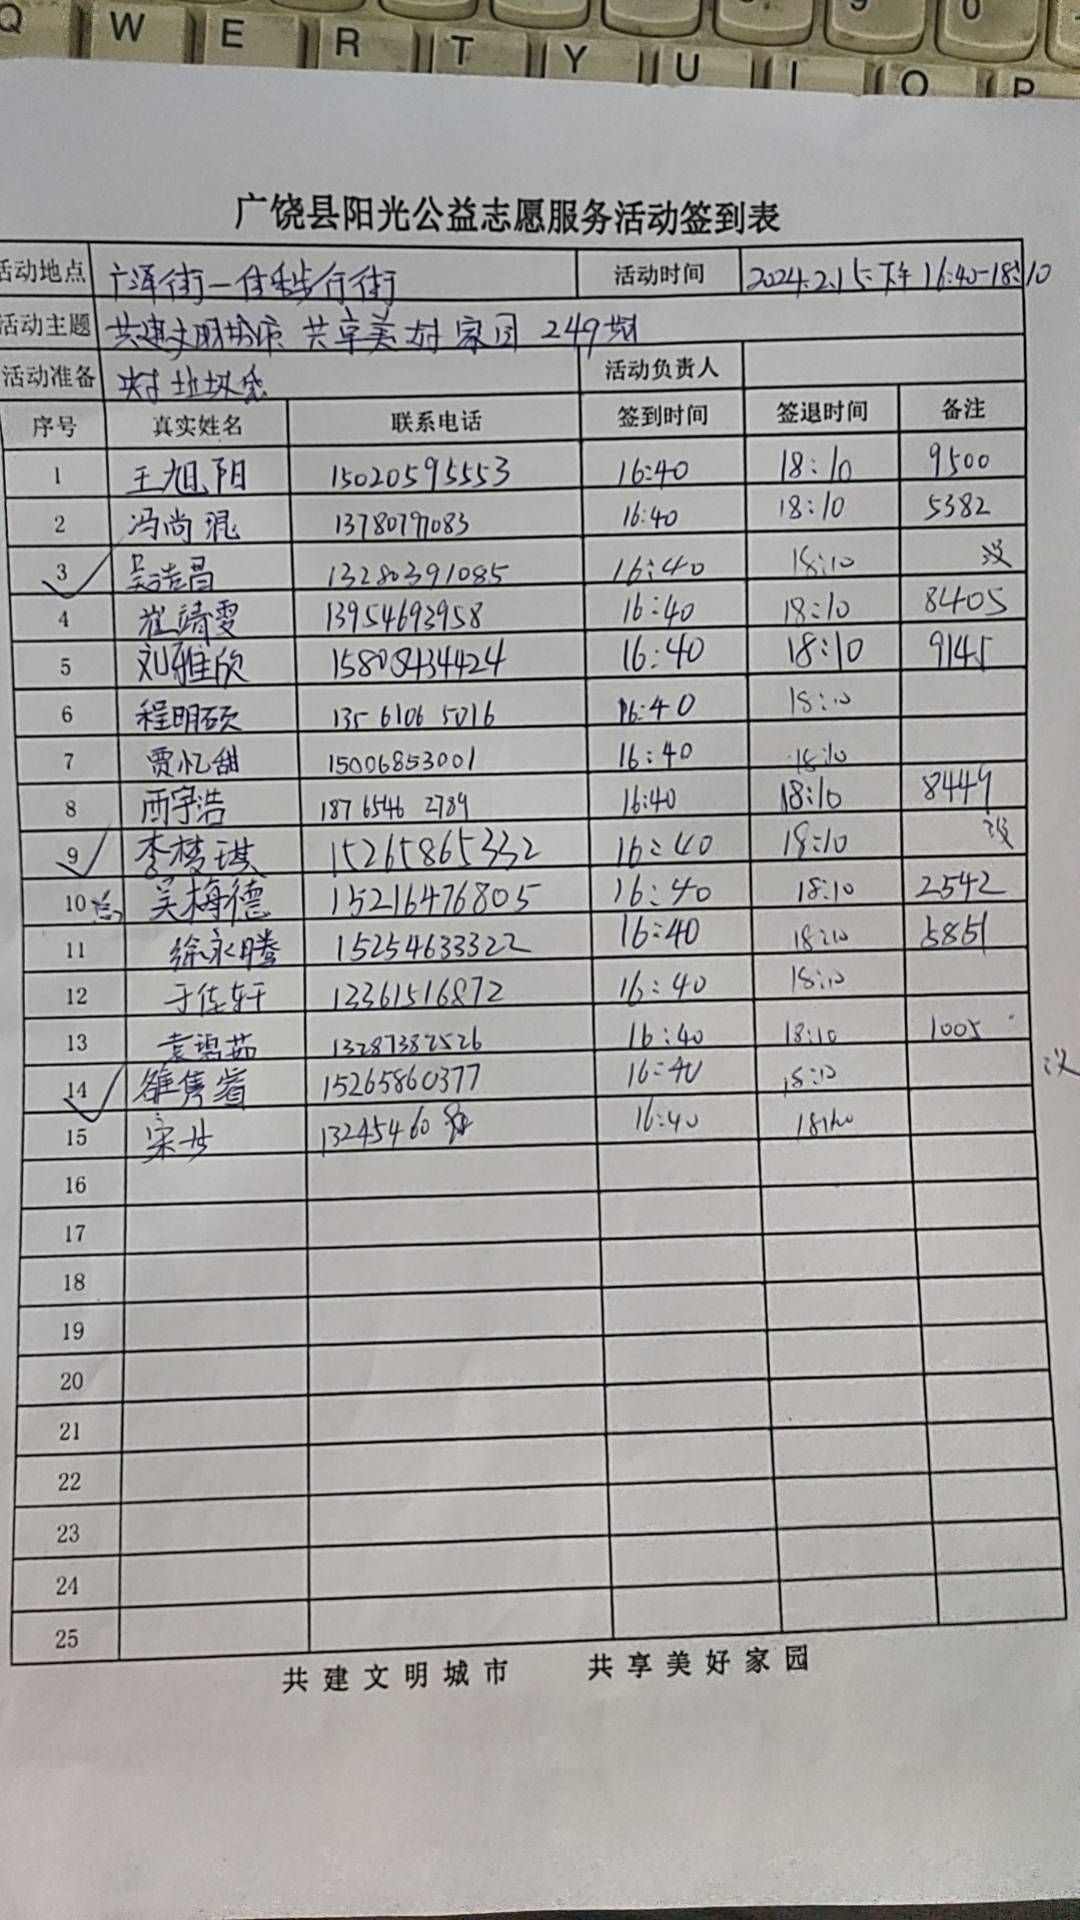 Q W E R T Y U I O P
9 0
广饶县阳光公益志愿服务活动签到表
活动地点 广泽街一佳乐步行街 活动时间 2024.2.15下午16:40-18:10
活动主题 共建文明城市 共享美好家园 249期
活动准备 垃圾袋 活动负责人
序号 真实姓名 联系电话 签到时间 签退时间 备注
1 王旭阳 15020595553 16:40 18:10 9500
2 冯尚琨 13780797083 16:40 18:10 5382
3 吴浩昌 13280391085 16:40 18:10 没
4 崔靖雯 13954693958 16:40 18:10 8405
5 刘雅欣 15808434424 16:40 18:10 9145
6 程明硕 135 6106 5016 16:40 18:10
7 贾忆甜 15006853001 16:40 18:10
8 西宇浩 187 6546 2789 16:40 18:10 8449
9 李梦琪 15265865332 16:40 18:10 没
10 吴梅德 15216476805 16:40 18:10 2542
11 徐永腾 15254633322 16:40 18:10 5851
12 于佳轩 13361516872 16:40 18:10
13 袁 茹 13287382526 16:40 18:10 1005
14 15265860377 16:40 18:10 没
15 宋 13245460 16:40
16
17
18
19
20
21
22
23
24
25
共建文明城市 共享美好家园